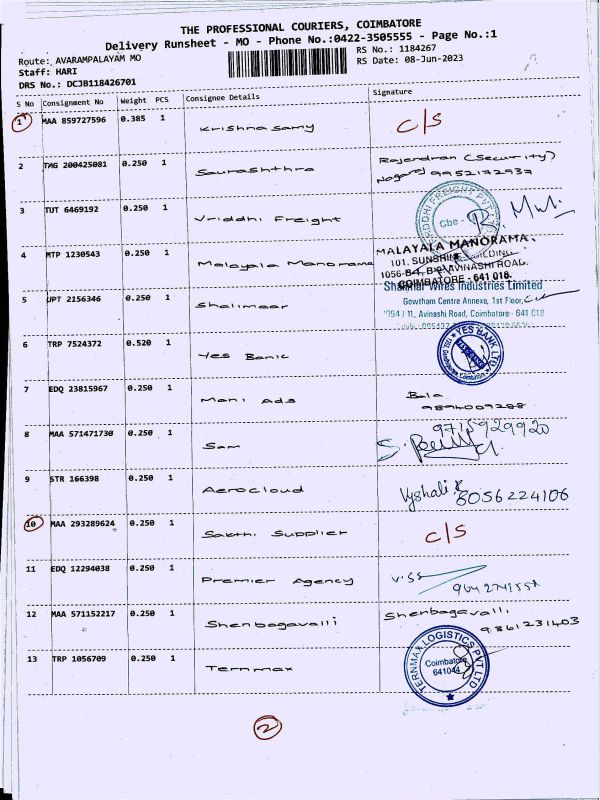 THE PROFESSIONAL COURIERS, COIMBATORE
Delivery Runsheet - MO - Phone No.:0422-3505555 - Page No.:1
Route: AVARAMPALAYAM MO
RS No.: 1184267
Staff: HARI
RS Date: 08-Jun-2023
DRS No.: DCJB118426701
S No Consignment No Weight PCS Consignee Details Signature
1 MAA 859727596 0.385 1 Krishnasamy C/S
2 TMG 200425081 0.250 1 Saurashthra Rajendran (Security)
Nagaraj 9952172937
3 TUT 6469192 0.250 1 Vriddhi Freight
4 MTP 1230543 0.250 1 Malayala Manorama MALAYALA MANORAMA.
101, SUNSHINE BUILDING
1056-B-4, AVINASHI ROAD.
COIMBATORE - 641 018.
5 UPT 2156346 0.250 1 Shalimaar Wires Industries Limited
Gowtham Centre Annexe, 1st Floor,
1054 / 11, Avinashi Road, Coimbatore - 641 018
6 TRP 7524372 0.520 1 Yes Bank YES BANK LTD
7 EDQ 23815967 0.250 1 Mani Ads Bala
8 MAA 571471730 0.250 1 Sam 9715929920
9 STR 166398 0.250 1 Aerocloud Vyshali 8056224106
10 MAA 293289624 0.250 1 Sakthi Supplier C/S
11 EDQ 12294038 0.250 1 Premier Agency
12 MAA 571152217 0.250 1 Shenbagavalli Shenbagavalli
9361231403
13 TRP 1056709 0.250 1 Ternmax TERNMAX LOGISTICS PVT LTD
Coimbatore
641044
2